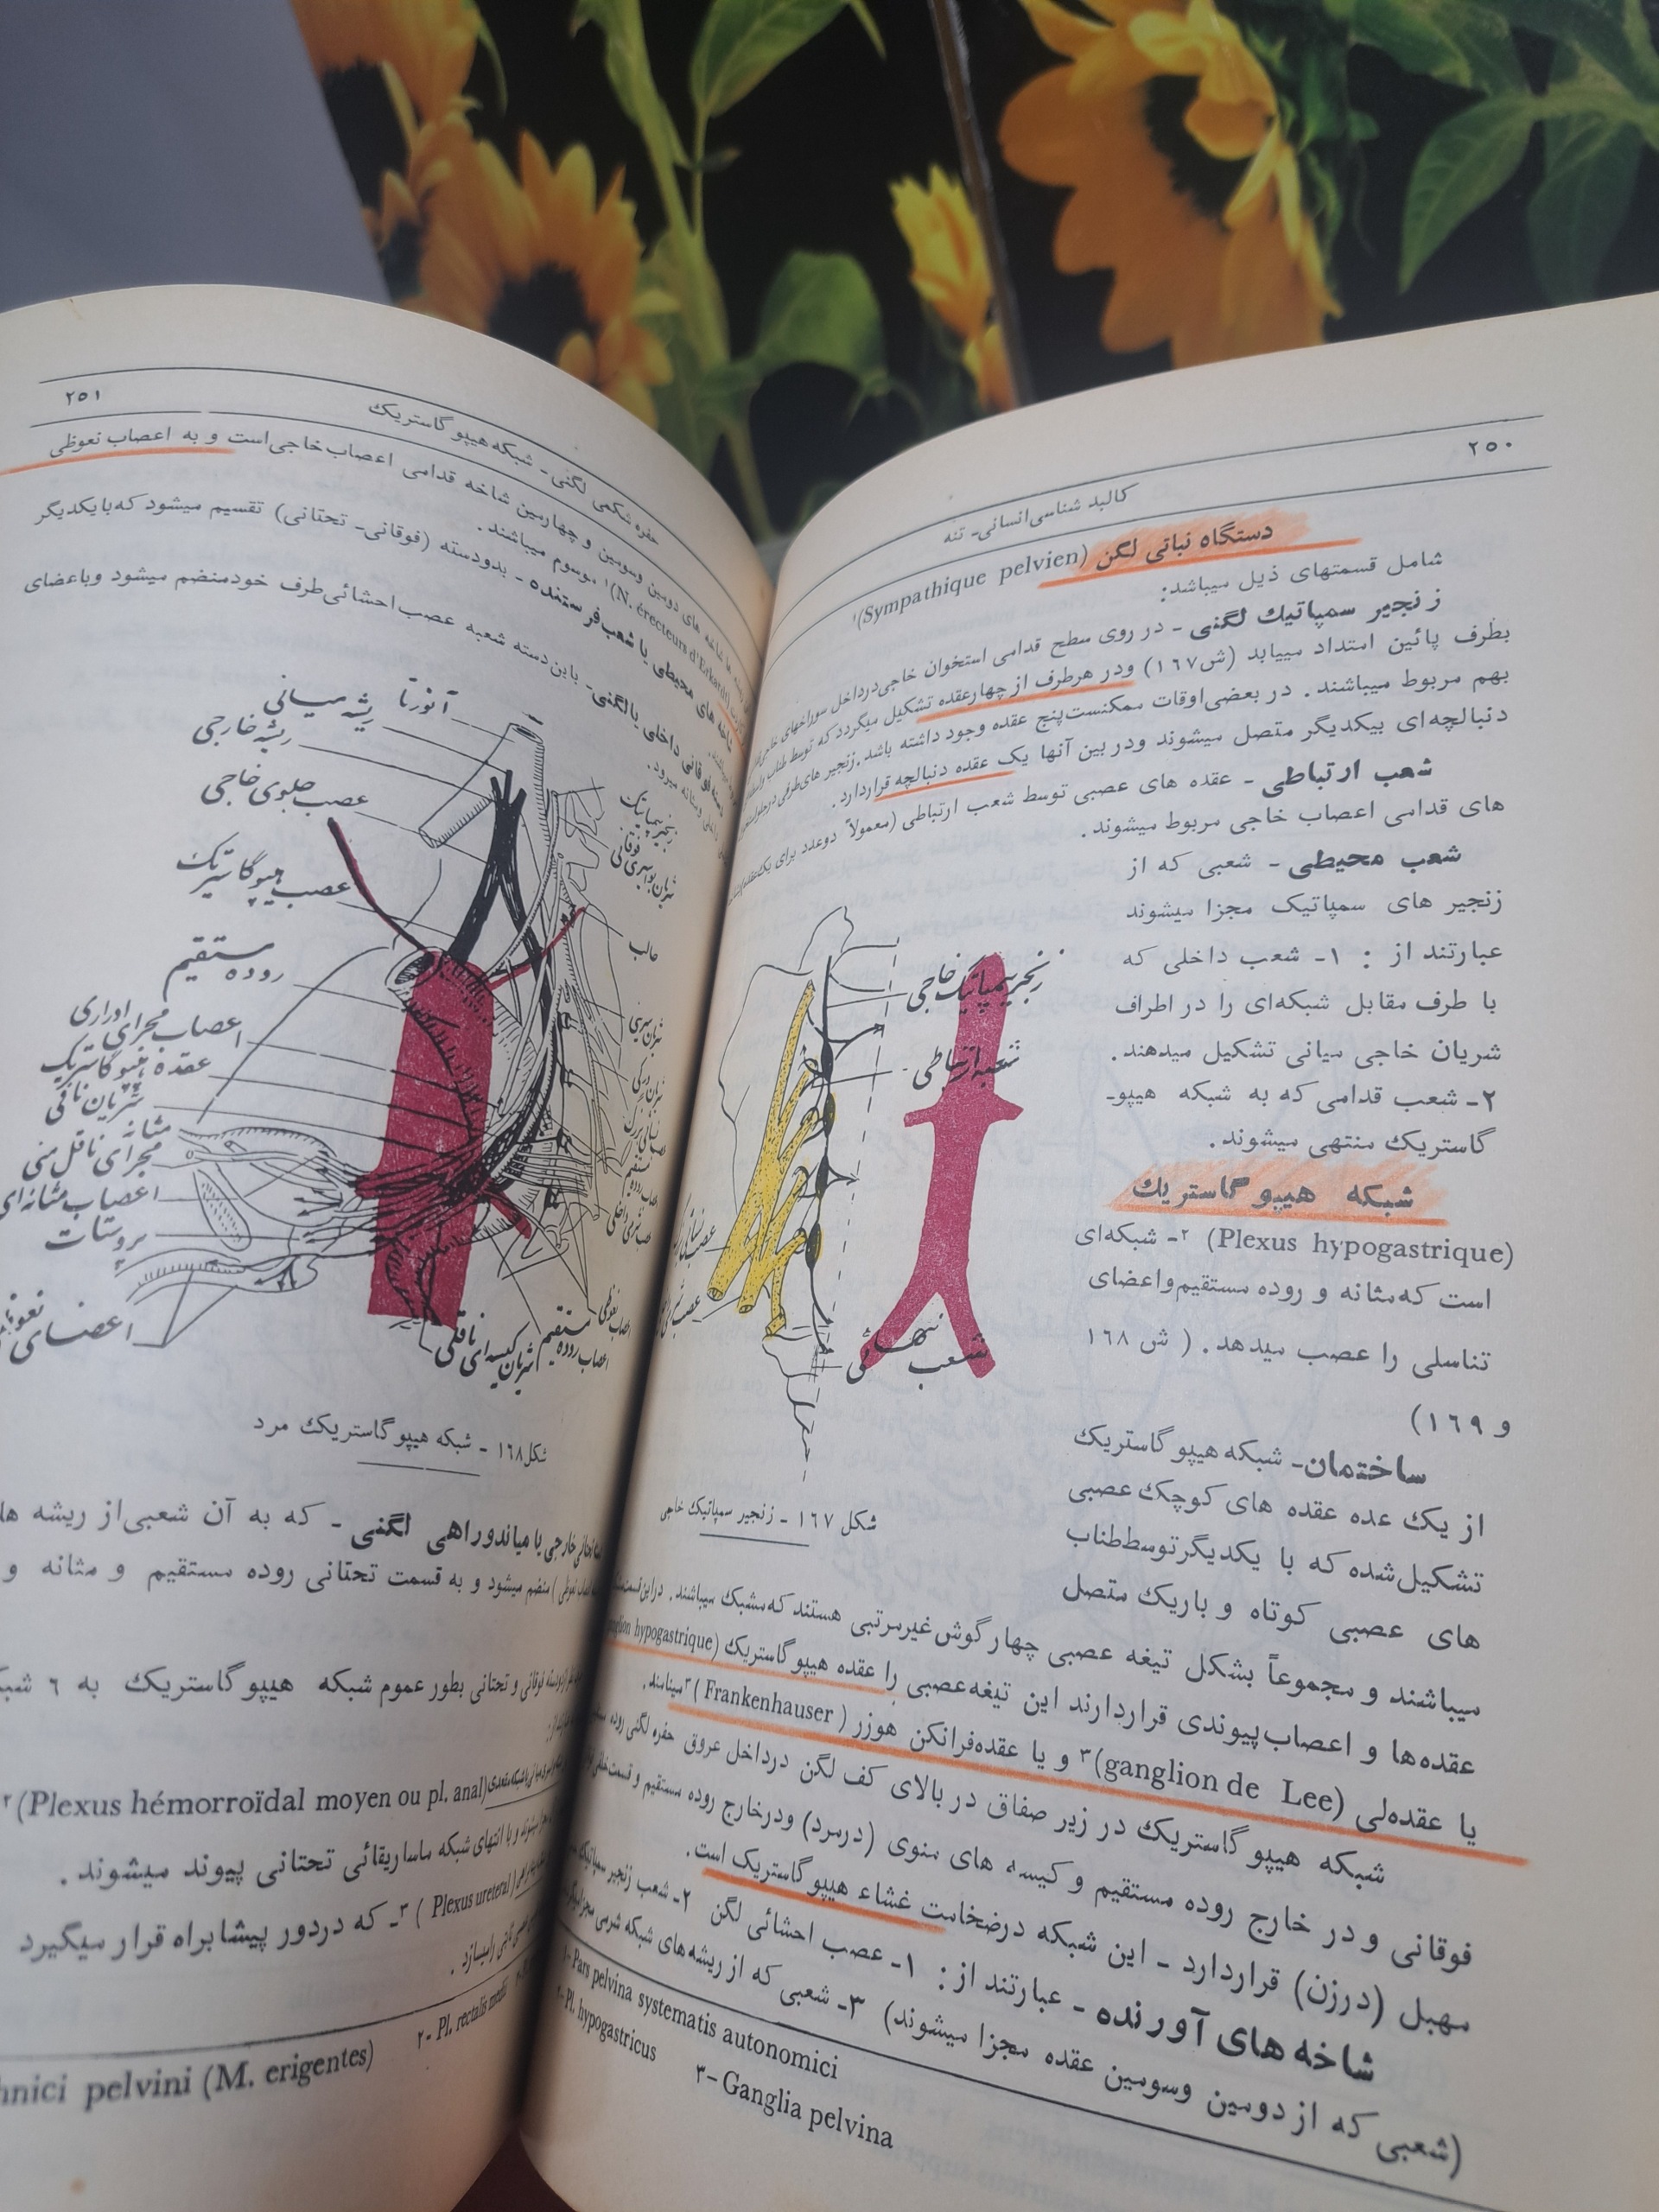 ٢٥٠
کالبد شناسی انسانی- تنه
دستگاه نباتی لگن (Sympathique pelvien)١
شامل قسمتهای ذیل میباشد:
زنجیر سمپاتیک لگنی - در روی سطح قدامی استخوان خاجی درداخل سوراخهای
بطرف پائین امتداد مییابد (ش١٦٧) ودر هرطرف از چهارعقده تشکیل میگردد که توسط طناب
بهم مربوط میباشند. در بعضی اوقات ممکنست پنج عقده وجود داشته باشد. زنجیر های طرفی
دنبالچه‌ای بیکدیگر متصل میشوند ودر بین آنها یک عقده دنبالچه قراردارد.
شعب ارتباطی - عقده های عصبی توسط شعب ارتباطی (معمولاً دوعدد برای یک عقده)
های قدامی اعصاب خاجی مربوط میشوند.
شعب محیطی - شعبی که از
زنجیر های سمپاتیک مجزا میشوند
عبارتند از : ١- شعب داخلی که
با طرف مقابل شبکه‌ای را در اطراف
شریان خاجی میانی تشکیل میدهند.
٢- شعب قدامی که به شبکه هیپو-
گاستریک منتهی میشوند.
شبکه هیپو گاستریك
(Plexus hypogastrique) ٢- شبکه‌ای
است که مثانه و روده مستقیم واعضای
تناسلی را عصب میدهد. ( ش ١٦٨
و ١٦٩)
ساختمان- شبکه هیپو گاستریک
از یک عده عقده های کوچک عصبی
تشکیل شده که با یکدیگر توسط طناب
های عصبی کوتاه و باریک متصل
زنجیر سمپاتیک خاجی
شعبه ارتباطی
شعب نهائی
شکل ١٦٧ - زنجیر سمپاتیک خاجی
میباشند و مجموعاً بشکل تیغه عصبی چهار گوش غیرمرتبی هستند که مشبک میباشند. دراین قسمت
عقده‌ها و اعصاب پیوندی قراردارند این تیغه عصبی را عقده هیپو گاستریک (ganglion hypogastrique)
یا عقده‌لی (ganglion de Lee)٣ و یا عقده فرانکن هوزر (Frankenhauser)٣ مینامند.
شبکه هیپو گاستریک در زیر صفاق در بالای کف لگن درداخل عروق حفره لگنی روده
فوقانی و در خارج روده مستقیم و کیسه های منوی (درمرد) ودرخارج روده مستقیم و قسمت خلفی
مهبل (درزن) قراردارد - این شبکه درضخامت غشاء هیپو گاستریک است.
شاخه های آورنده - عبارتند از: ١- عصب احشائی لگن ٢- شعب زنجیر سمپاتیک
(شعبی که از دومین وسومین عقده مجزا میشوند) ٣- شعبی که از ریشه های شبکه شرسی
١- Pars pelvina systematis autonomici
٢- Pl. hypogastricus
٣- Ganglia pelvina
٢٥١
حفره شکمی لگنی - شبکه هیپو گاستریک
شاخه های دومین وسومین و چهارمین شاخه قدامی اعصاب خاجی است و به اعصاب نعوظی
(N. érecteurs d'Eckardt)١ موسوم میباشند.
شاخه های محیطی یا شعب فرستنده - بدودسته (فوقانی- تحتانی) تقسیم میشود که بایکدیگر
دسته فوقانی داخلی یا لگنی - باین دسته شعبه عصب احشائی طرف خودمنضم میشود وباعضای
مثانه میرود.
آئورتا
ریشه میانی
ریشه خارجی
عصب جلوی خاجی
عصب هیپوگاستریک
روده مستقیم
اعصاب مجرای اوراری
عقده هیپوگاستریک
شریان نافی
مثانه
مجرای ناقل منی
اعصاب مثانه‌ای
پروستات
اعضای
زنجیر سمپاتیک
حالب
اعصاب روده مستقیم
شکل ١٦٨ - شبکه هیپو گاستریک مرد
خارجی یا میاندوراهی لگنی - که به آن شعبی از ریشه
منضم میشود و به قسمت تحتانی روده مستقیم و مثانه و
فوقانی و تحتانی بطور عموم شبکه هیپو گاستریک به ٦
(Plexus hémorroïdal moyen ou pl. anal)٢
و با انتهای شبکه ماساریقائی تحتانی پیوند میشوند.
(Plexus uretéral) ٣- که دردور پیشابراه قرار میگیرد
رامیسازد.
٢- Pl. rectalis medii
pelvini (M. erigentes)